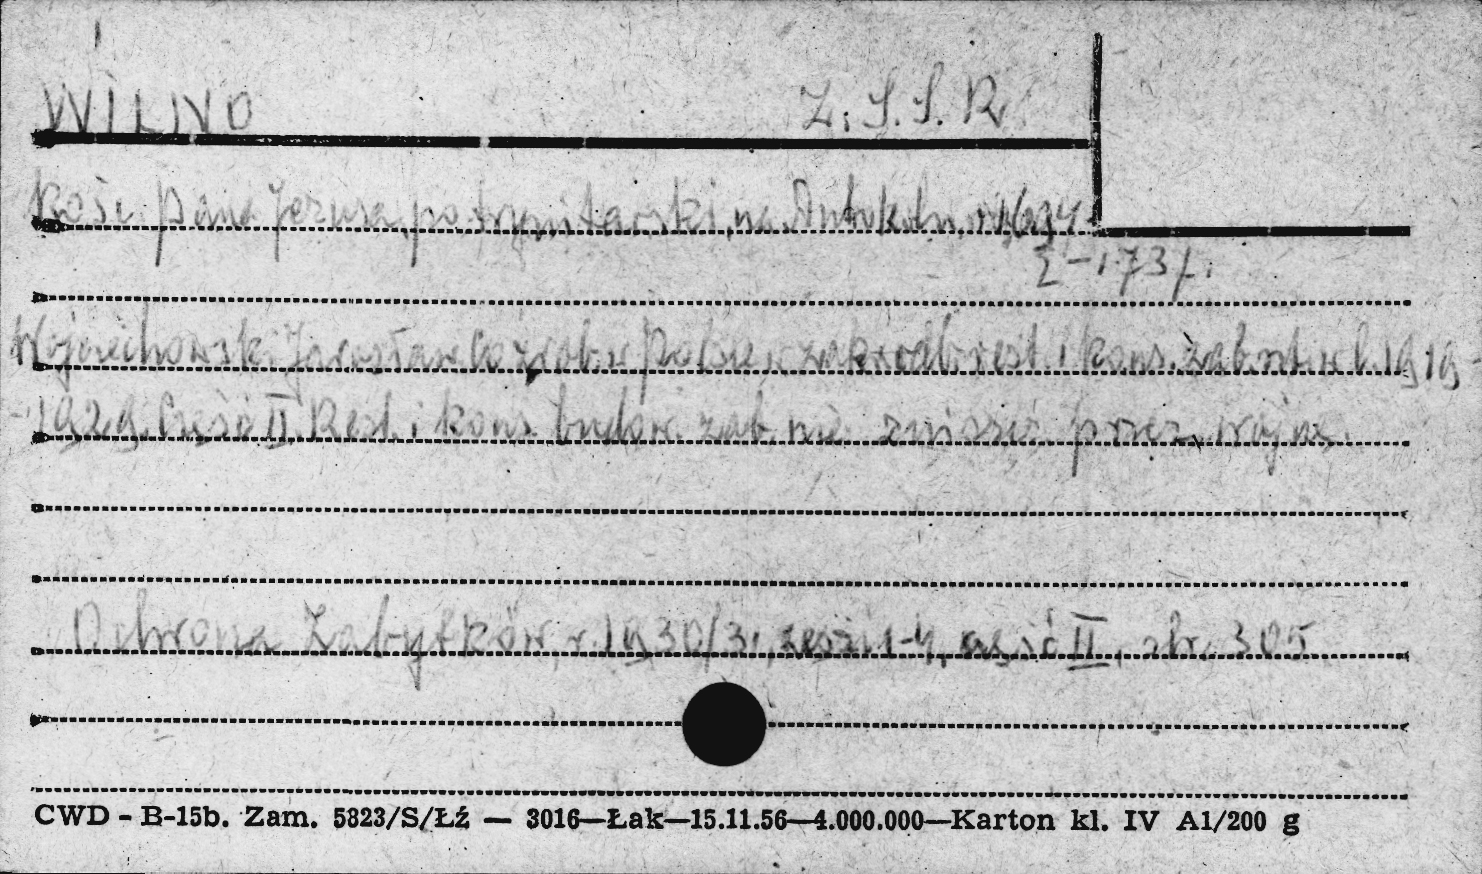 WILNO Z.S.S.R.
Kośc. Pana Jezusa po trynitarski, na Antokolu, r. 1694-
1737.
Wojciechowski Jarosław Co zrob. w Polsce w zakr. odb. rest. i kons. zab. szt. w l. 1919-
-1929. Część II. Rest. i kons. budow. zab. przez wojnę.
Ochrona Zabytków, r. 1930/31, zesz. 1-4, część II, str. 305
CWD - B-15b. Zam. 5823/S/Łź — 3016—Łak—15.11.56—4.000.000—Karton kl. IV A1/200 g